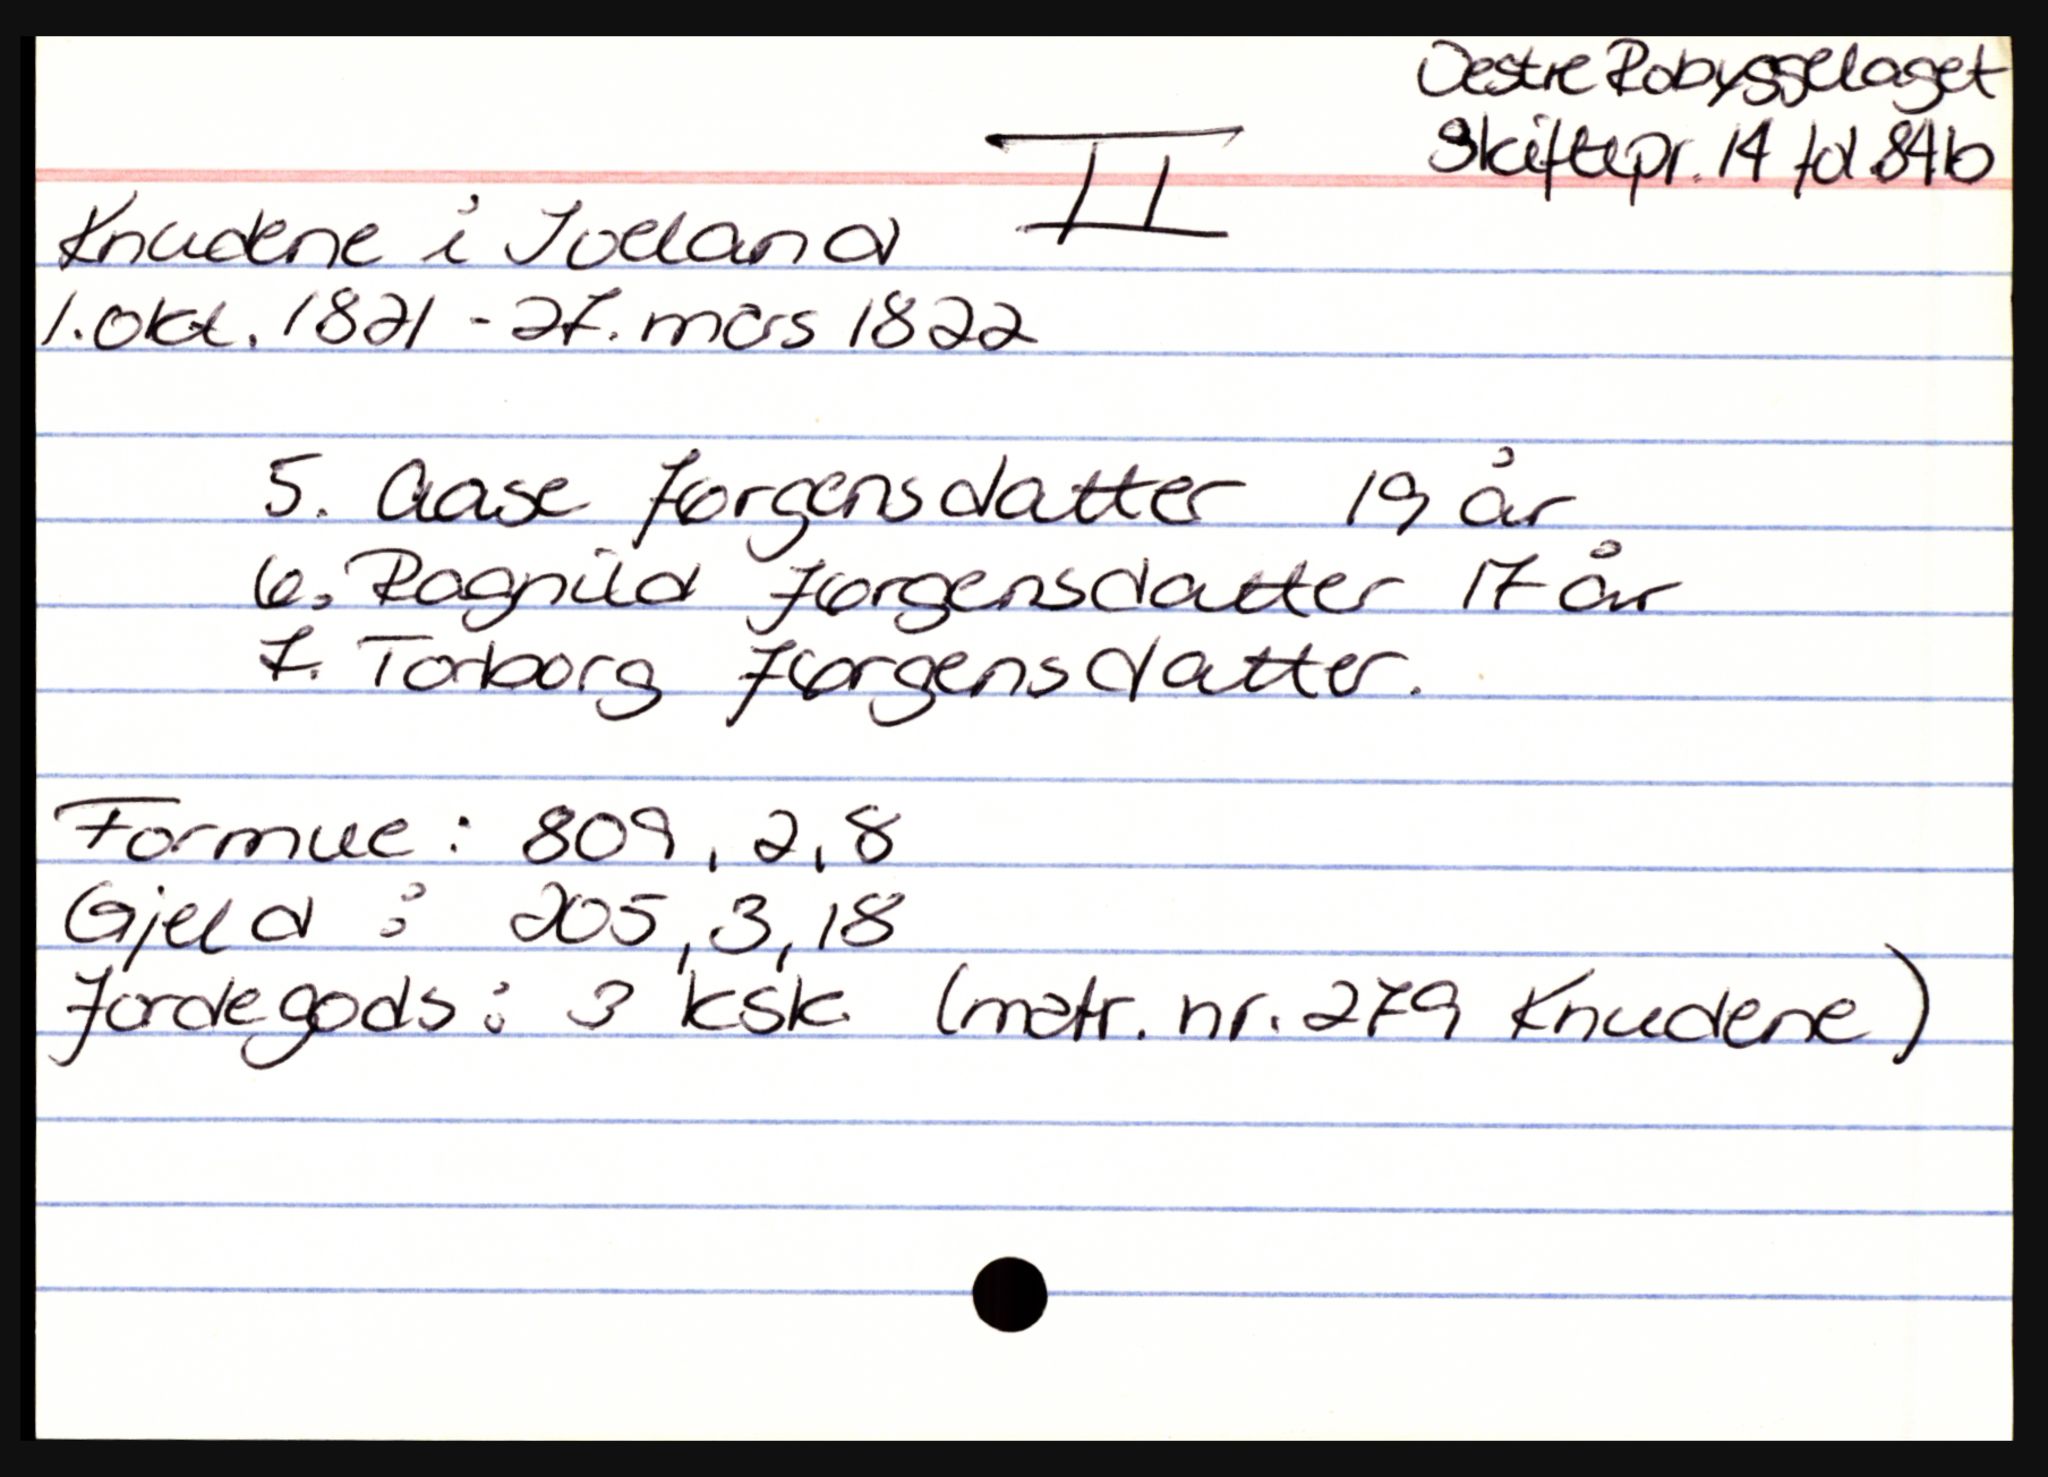 Vestre Robyggelaget
Skiftepr. 14 fol 84b
II
Knudene i Iveland
1. okt. 1821 - 27. mars 1822
5. Aase Jørgensdatter 19 år
6. Ragnild Jørgensdatter 17 år
7. Torborg Jørgensdatter.
Formue: 809, 2, 8
Gjeld: 205, 3, 18
Jordegods: 3 ksk (matr. nr. 279 Knudene)